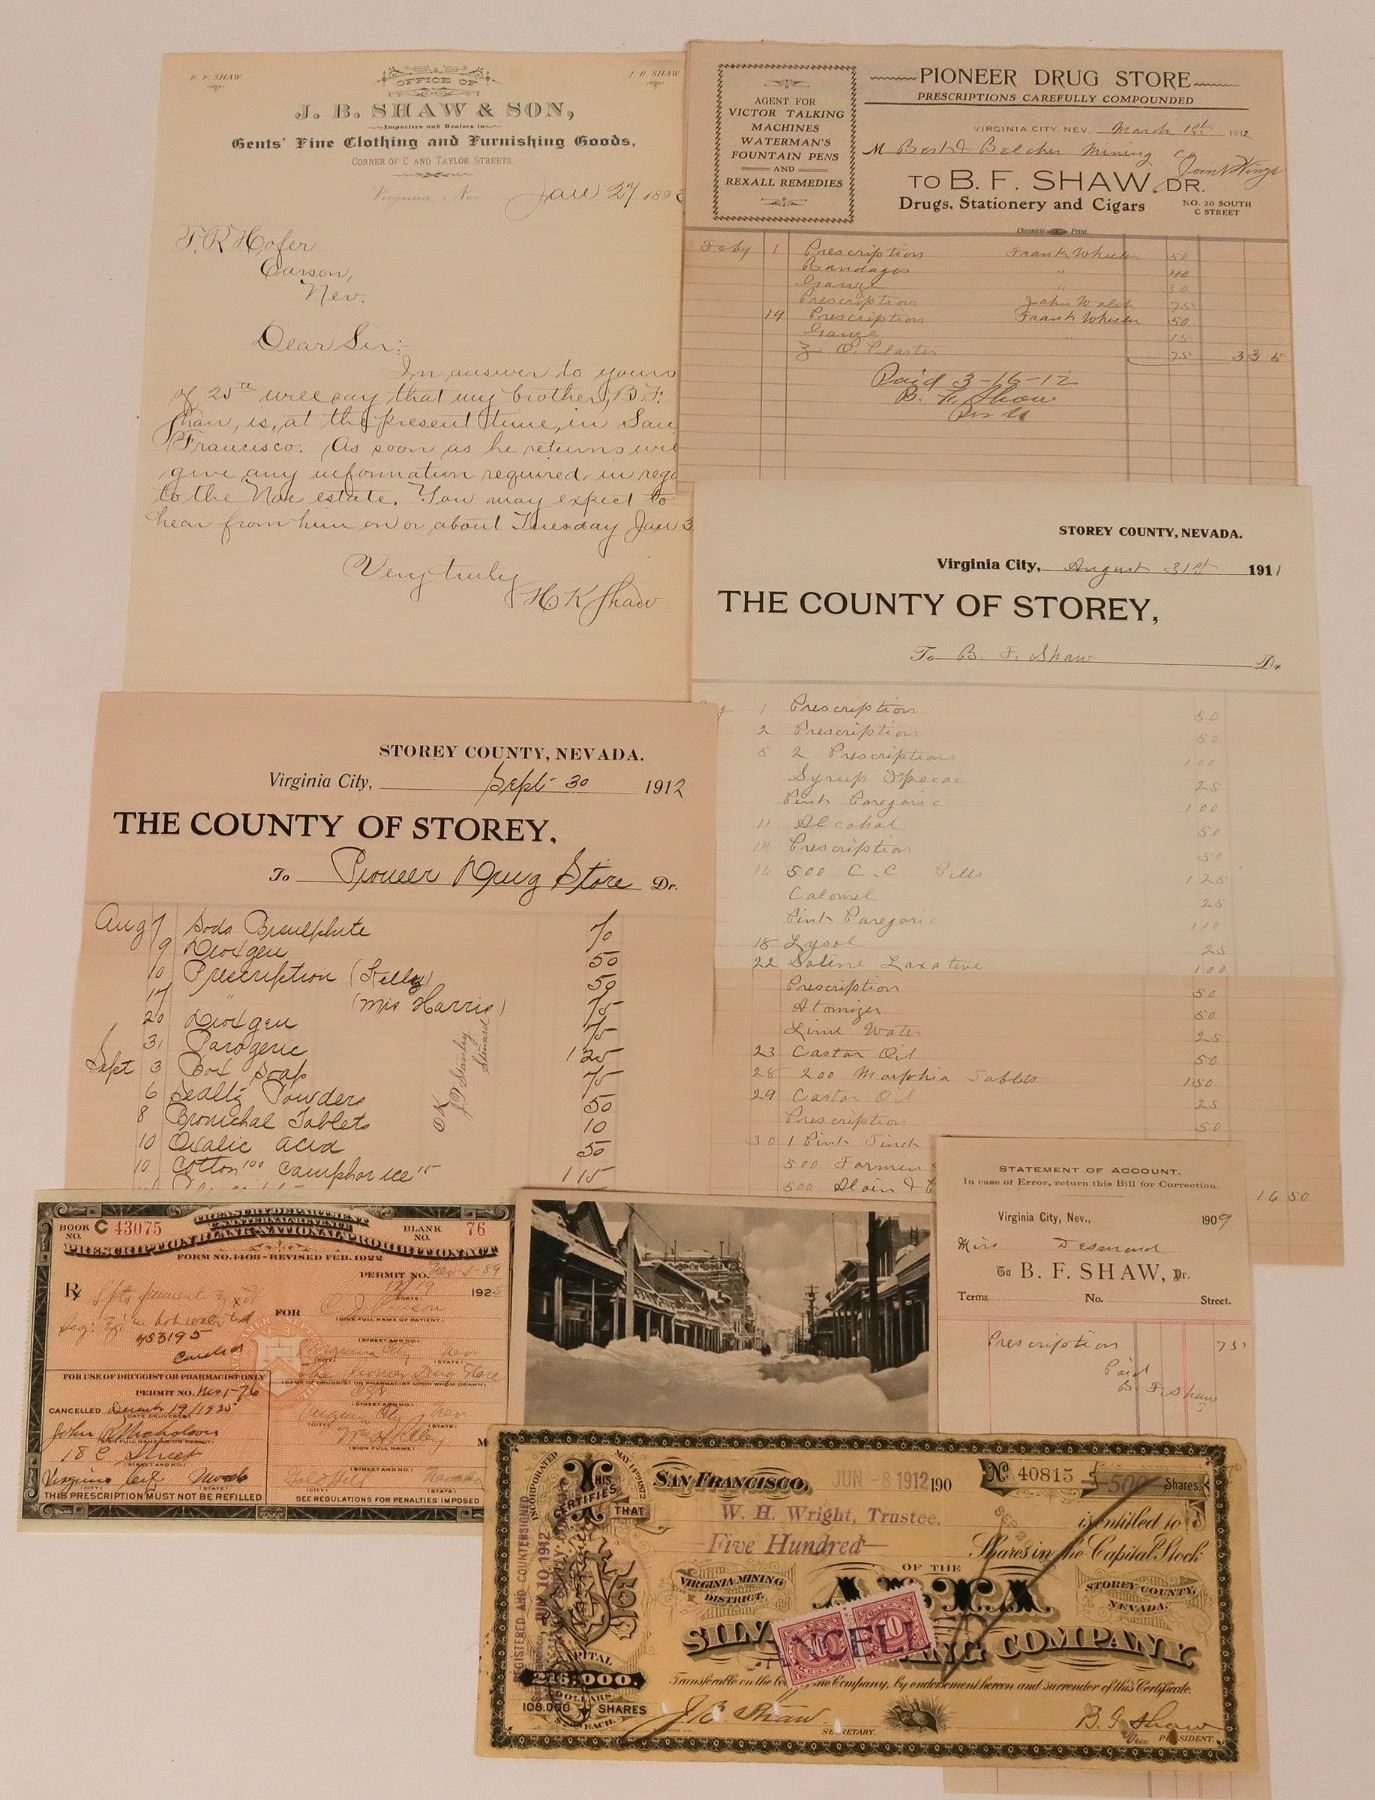 B. F. SHAW.
J. B. SHAW
OFFICE OF
J. B. SHAW & SON,
Importers and Dealers in
Gents' Fine Clothing and Furnishing Goods,
CORNER OF C AND TAYLOR STREETS.
Virginia, Nev. Jan 27 1893
F. R. Hofer
Carson,
Nev.
Dear Sir:-
In answer to yours
of 25th will say that my brother, B.F.
Shaw, is, at the present time, in San
Francisco. As soon as he returns will
give any information required in rega
to the Noe estate. You may expect to
hear from him on or about Tuesday Jan 3
Very truly
H K Shaw
AGENT FOR
VICTOR TALKING
MACHINES
WATERMAN'S
FOUNTAIN PENS
AND
REXALL REMEDIES
PIONEER DRUG STORE
PRESCRIPTIONS CAREFULLY COMPOUNDED
VIRGINIA CITY, NEV. March 1st 1912
M Best & Belcher Mining Co
Joint Winze
TO B. F. SHAW, DR.
Drugs, Stationery and Cigars
NO. 20 SOUTH
C STREET
Chronicle Print
Feby 1 Prescription Frank Wheeler 50
Bandages " 40
Gauze " 30
Prescription John Walsh 75
19 Prescription Frank Wheeler 50
Gauze " 15
Z. O. Plaster " 75 3 3 5
Paid 3-16-12
B. F. Shaw
STOREY COUNTY, NEVADA.
Virginia City, August 31st 1911
THE COUNTY OF STOREY,
To B. F. Shaw Dr
1 Prescription 50
2 Prescription 50
5 2 Prescriptions 1 00
Syrup Ipecac 25
Pink Paregoric 1 00
11 Alcohol 50
14 Prescription 50
16 500 C. C. Pills 1 25
Calomel 25
Pink Paregoric 1 00
18 Lysol 25
22 Saline Laxative 1 00
Prescription 50
Atomizer 50
Lime Water 25
23 Castor Oil 50
28 200 Morphia Tablets 1 50
29 Castor Oil 25
Prescription 50
30 1 Pint Tinch
500
500 Aloin &
16 50
STOREY COUNTY, NEVADA.
Virginia City, Sept 30 1912
THE COUNTY OF STOREY,
To Pioneer Drug Store Dr.
Aug 7 Soda Bisulphite 10
9 Dioxgen 50
10 Prescription (Kelly) 50
17 " (Mis Harris) 75
20 Dioxgen 75
31 Paregoric 1 25
Sept 3 Box Soap 75
6 Sedlitz Powders 50
8 Bronichal Tablets 10
10 Oxalic acid 50
10 Cotton 100 Camphor ice 15 1 15
OK
J D Stanley
Steward
STATEMENT OF ACCOUNT.
In case of Error, return this Bill for Correction.
Virginia City, Nev., 1909
Miss Desmond
To B. F. SHAW, Dr.
Terms No. Street.
Prescription 75
Paid
B. F. Shaw
BOOK NO. C 43075
TREASURY DEPARTMENT
U.S. INTERNAL REVENUE
BLANK NO. 76
PRESCRIPTION BLANK-NATIONAL PROHIBITION ACT
FORM NO. 1403-REVISED FEB. 1922
PERMIT NO. Nev-1-89
12/19 1925
(DATE)
Rx
FOR
(GIVE FULL NAME OF PATIENT)
(STREET AND NO.)
Virginia City Nev
(CITY) (STATE)
The Pioneer Drug Store
(NAME OF DRUGGIST OR PHARMACIST UPON WHOM DRAWN)
(STREET AND NO.)
Virginia City Nev
(CITY) (STATE)
(SIGN FULL NAME)
M
(STREET AND NO.)
(CITY) (STATE)
SEE REGULATIONS FOR PENALTIES IMPOSED
FOR USE OF DRUGGIST OR PHARMACIST ONLY
PERMIT NO. Nev 1-76
CANCELLED December 19/1925
(DATE DELIVERED)
John R Nicholson
(SIGN FULL NAME AS ON PERMIT)
18 C Street
(STREET AND NO.)
Virginia City Nevada
(CITY) (STATE)
THIS PRESCRIPTION MUST NOT BE REFILLED
INCORPORATED MAY 14TH 1872
THIS
CERTIFIES
THAT
SAN FRANCISCO, JUN -8 1912 190
No 40815 500 Shares
W. H. Wright, Trustee. is entitled to
Five Hundred Shares in the Capital Stock
OF THE
VIRGINIA MINING
DISTRICT.
ALTA
STOREY COUNTY,
NEVADA.
SILVER MINING COMPANY.
CANCELLED
REGISTERED AND COUNTERSIGNED
JUN 10 1912
CAPITAL
216,000.
DOLLARS
108,000 SHARES
$2 EACH.
Transferable on the books of the Company, by endorsement hereon and surrender of this Certificate.
J. B. Shaw
SECRETARY.
B. F. Shaw
Vice PRESIDENT.